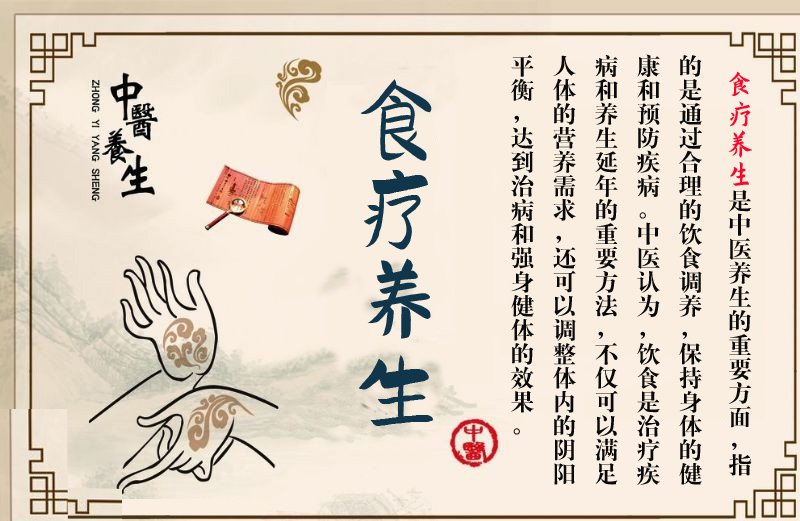 食疗养生是中医养生的重要方面,指
的是通过合理的饮食调养,保持身体的健
康和预防疾病。中医认为,饮食是治疗疾
病和养生延年的重要方法,不仅可以满足
人体的营养需求,还可以调整体内的阴阳
平衡,达到治病和强身健体的效果。
食疗养生
中醫
中醫養生
ZHONG YI YANG SHENG